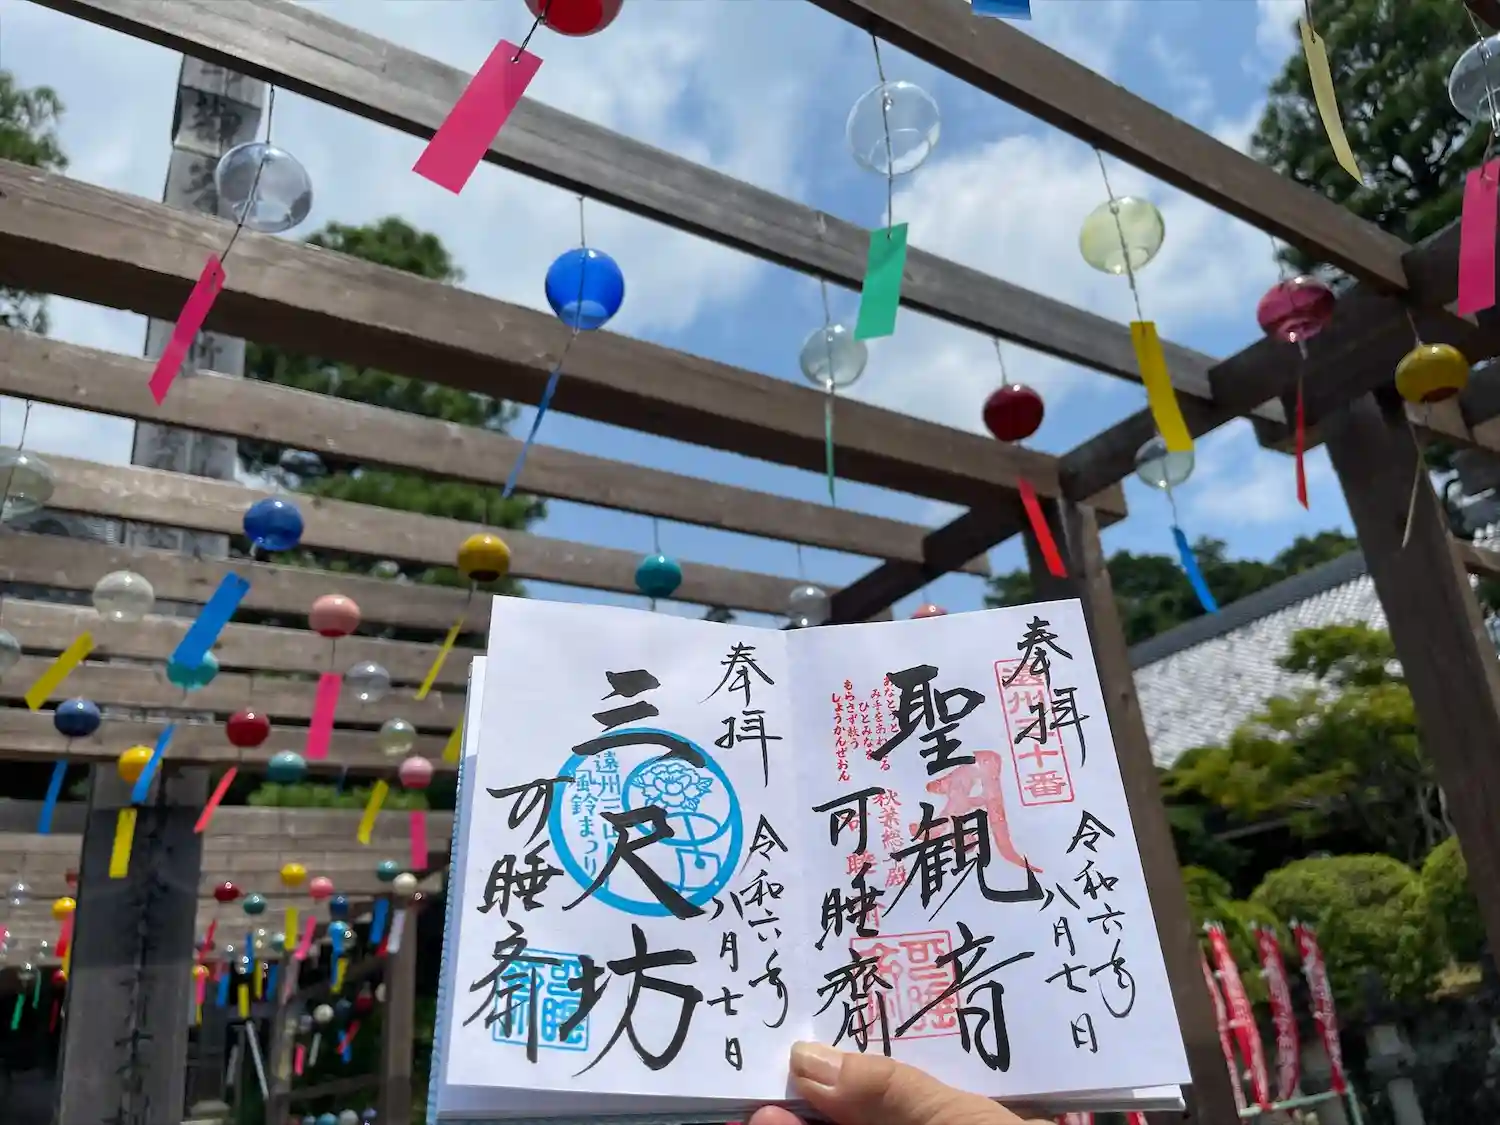 奉拝
遠州三十番
令和六年
八月七日
聖観音
あなとうと
み手をあわせる
ひとみなを
もらさず救う
しょうかんぜおん
秋葉総本殿
可睡齋
奉拝
令和六年
八月七日
三尺坊
遠州三山
風鈴まつり
可睡斎